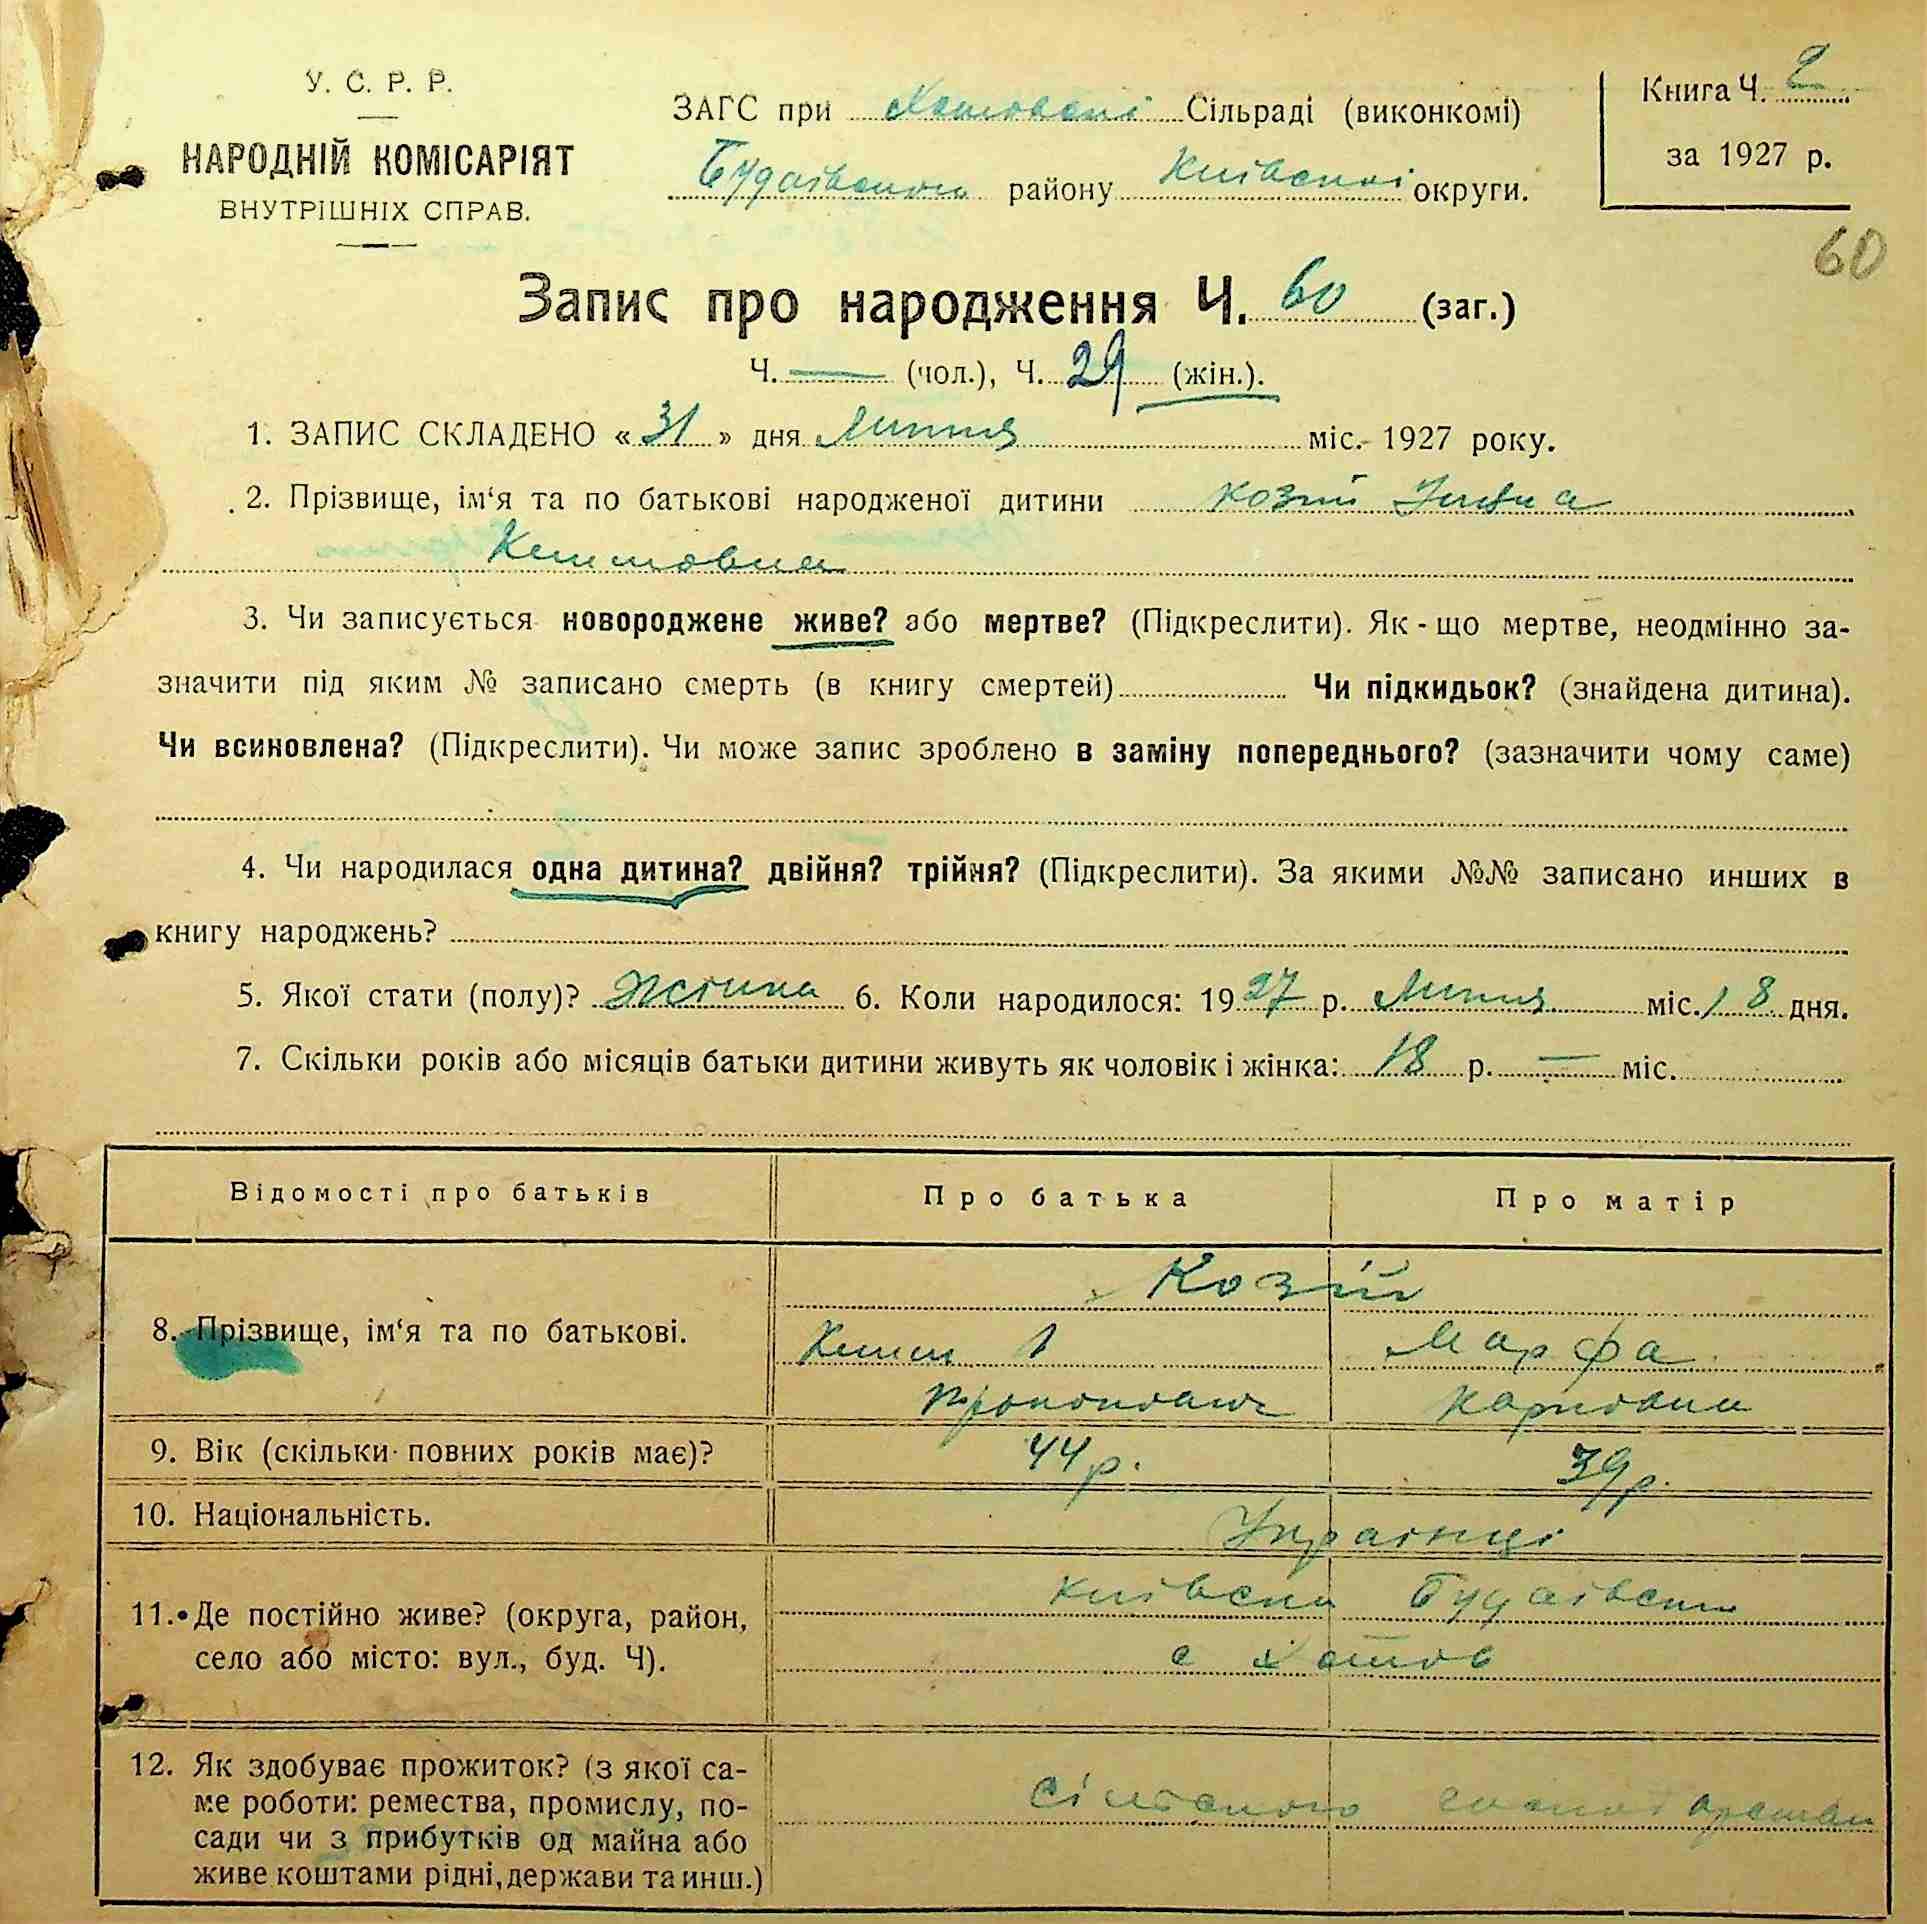 У. С. Р. Р.
НАРОДНІЙ КОМІСАРІЯТ
ВНУТРІШНІХ СПРАВ.
ЗАГС при Хотовскі Сільраді (виконкомі)
Будаївського району Київської округи.
Книга Ч. 2
за 1927 р.
60
Запис про народження Ч. 60 (заг.)
Ч. — (чол.), Ч. 29 (жін.).
1. ЗАПИС СКЛАДЕНО «31» дня Липня міс. 1927 року.
2. Прізвище, ім‘я та по батькові народженої дитини Козій
3. Чи записується новороджене живе? або мертве? (Підкреслити). Як-що мертве, неодмінно за-
значити під яким № записано смерть (в книгу смертей) Чи підкидьок? (знайдена дитина).
Чи всиновлена? (Підкреслити). Чи може запис зроблено в заміну попереднього? (зазначити чому саме)
4. Чи народилася одна дитина? двійня? трійня? (Підкреслити). За якими №№ записано инших в
книгу народжень?
5. Якої стати (полу)? Жіноча 6. Коли народилося: 1927 р. Липня міс. 18 дня.
7. Скільки років або місяців батьки дитини живуть як чоловік і жінка: 18 р. — міс.
Відомості про батьків Про батька Про матір
Козій
8. Прізвище, ім‘я та по батькові. Марфа
Прокопович Карповна
9. Вік (скільки повних років має)? 44 р. 39 р.
10. Національність. Українці
11. Де постійно живе? (округа, район, Київська Будаївськ
село або місто: вул., буд. Ч). с Хотов
12. Як здобуває прожиток? (з якої са-
ме роботи: ремества, промислу, по- сільського
сади чи з прибутків од майна або
живе коштами рідні, держави та инш.)